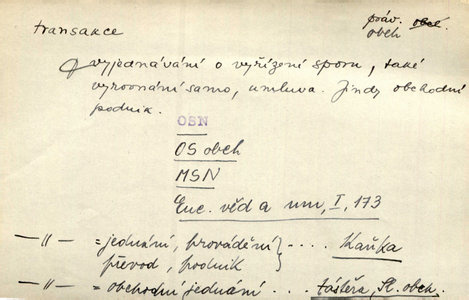 transakce
práv. obch.
obch
vyjednávání o vyřízení sporu, také
vyrovnání samo, umluva. Jindy obchodní
podnik.
OSN
OS obch
MSN
Enc. věd a um, I, 173
—〃— = jednání, provádění } .... Kaňka
převod, podnik
—〃— = obchodní jednání .... Fáštěra, Sl. obch.